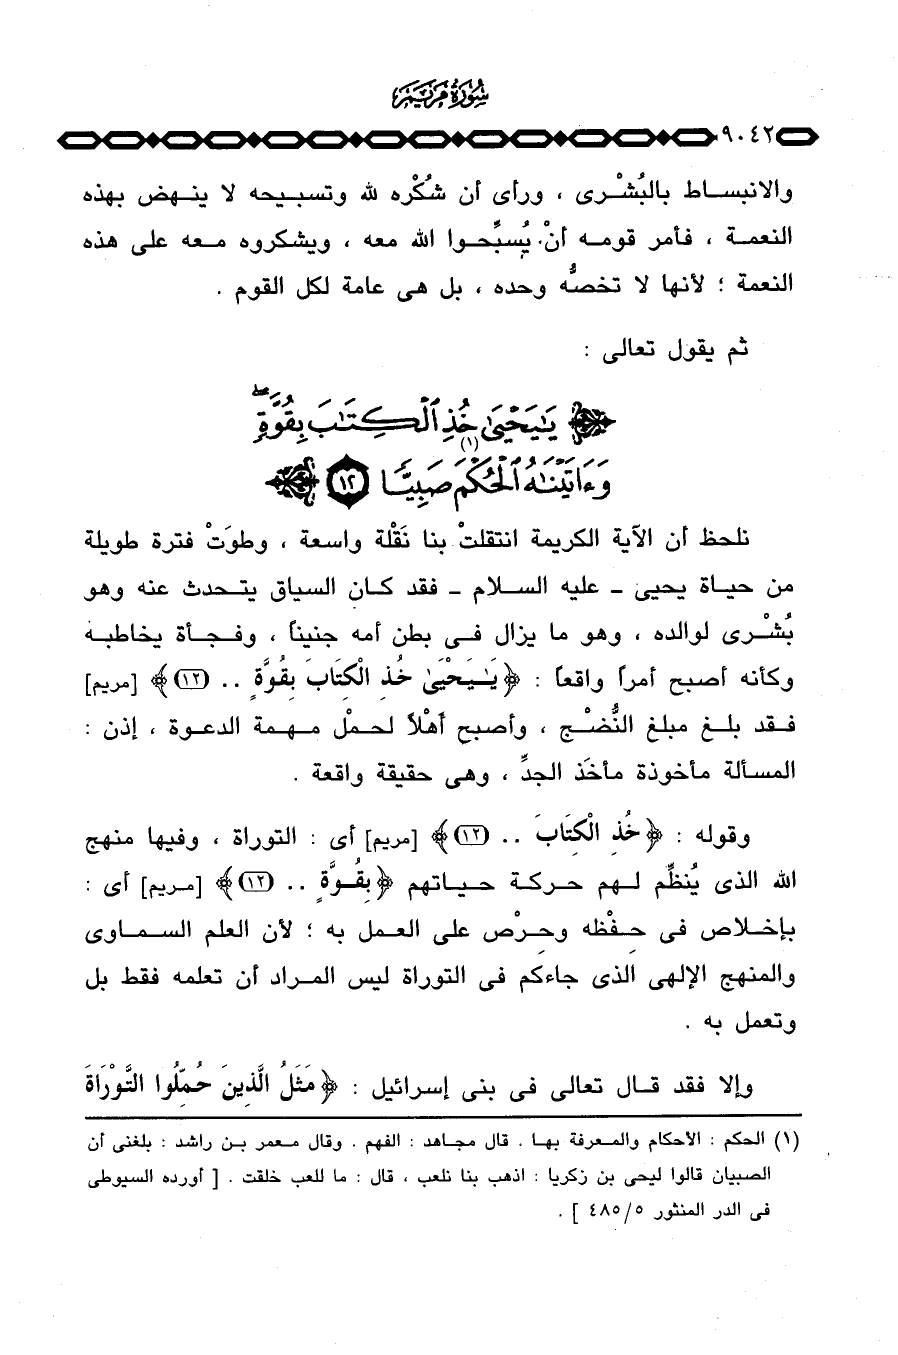 سُورَةُ مَرْيَمَ
٩٠٤٢
والانبساط بالبُشْرى ، ورأى أن شكْره لله وتسبيحه لا ينهض بهذه
النعمة ، فأمر قومه أنْ يُسبِّحوا الله معه ، ويشكروه معه على هذه
النعمة ؛ لأنها لا تخصُّه وحده ، بل هى عامة لكل القوم .
ثم يقول تعالى :
﴿ يَٰيَحْيَىٰ خُذِ ٱلْكِتَٰبَ بِقُوَّةٍۖ
وَءَاتَيْنَٰهُ ٱلْحُكْمَ (١) صَبِيًّا ١٢ ﴾
نلحظ أن الآية الكريمة انتقلتْ بنا نَقْلة واسعة ، وطوَتْ فترة طويلة
من حياة يحيى - عليه السلام - فقد كان السياق يتحدث عنه وهو
بُشْرى لوالده ، وهو ما يزال فى بطن أمه جنيناً ، وفجأة يخاطبه
وكأنه أصبح أمراً واقعاً : ﴿ يَٰيَحْيَىٰ خُذِ الْكِتَابَ بِقُوَّةٍ .. (١٢) ﴾ [مريم]
فقد بلغ مبلغ النُّضْج ، وأصبح أَهْلاً لحمْل مهمة الدعوة ، إذن :
المسألة مأخوذة مأخَذ الجدِّ ، وهى حقيقة واقعة .
وقوله : ﴿ خُذِ الْكِتَابَ .. (١٢) ﴾ [مريم] أى : التوراة ، وفيها منهج
الله الذى يُنظِّم لهم حركة حياتهم ﴿ بِقُوَّةٍ .. (١٢) ﴾ [مريم] أى :
بإخلاص فى حِفْظه وحِرْص على العمل به ؛ لأن العلم السماوى
والمنهج الإلهى الذى جاءكم فى التوراة ليس المراد أن تعلمه فقط بل
وتعمل به .
وإلا فقد قال تعالى فى بنى إسرائيل : ﴿ مَثَلُ الَّذِينَ حُمِّلُوا التَّوْرَاةَ
(١) الحكم : الأحكام والمعرفة بها . قال مجاهد : الفهم . وقال معمر بن راشد : بلغنى أن
الصبيان قالوا ليحى بن زكريا : اذهب بنا نلعب ، قال : ما للعب خلقت . [ أورده السيوطى
فى الدر المنثور ٤٨٥/٥ ] .